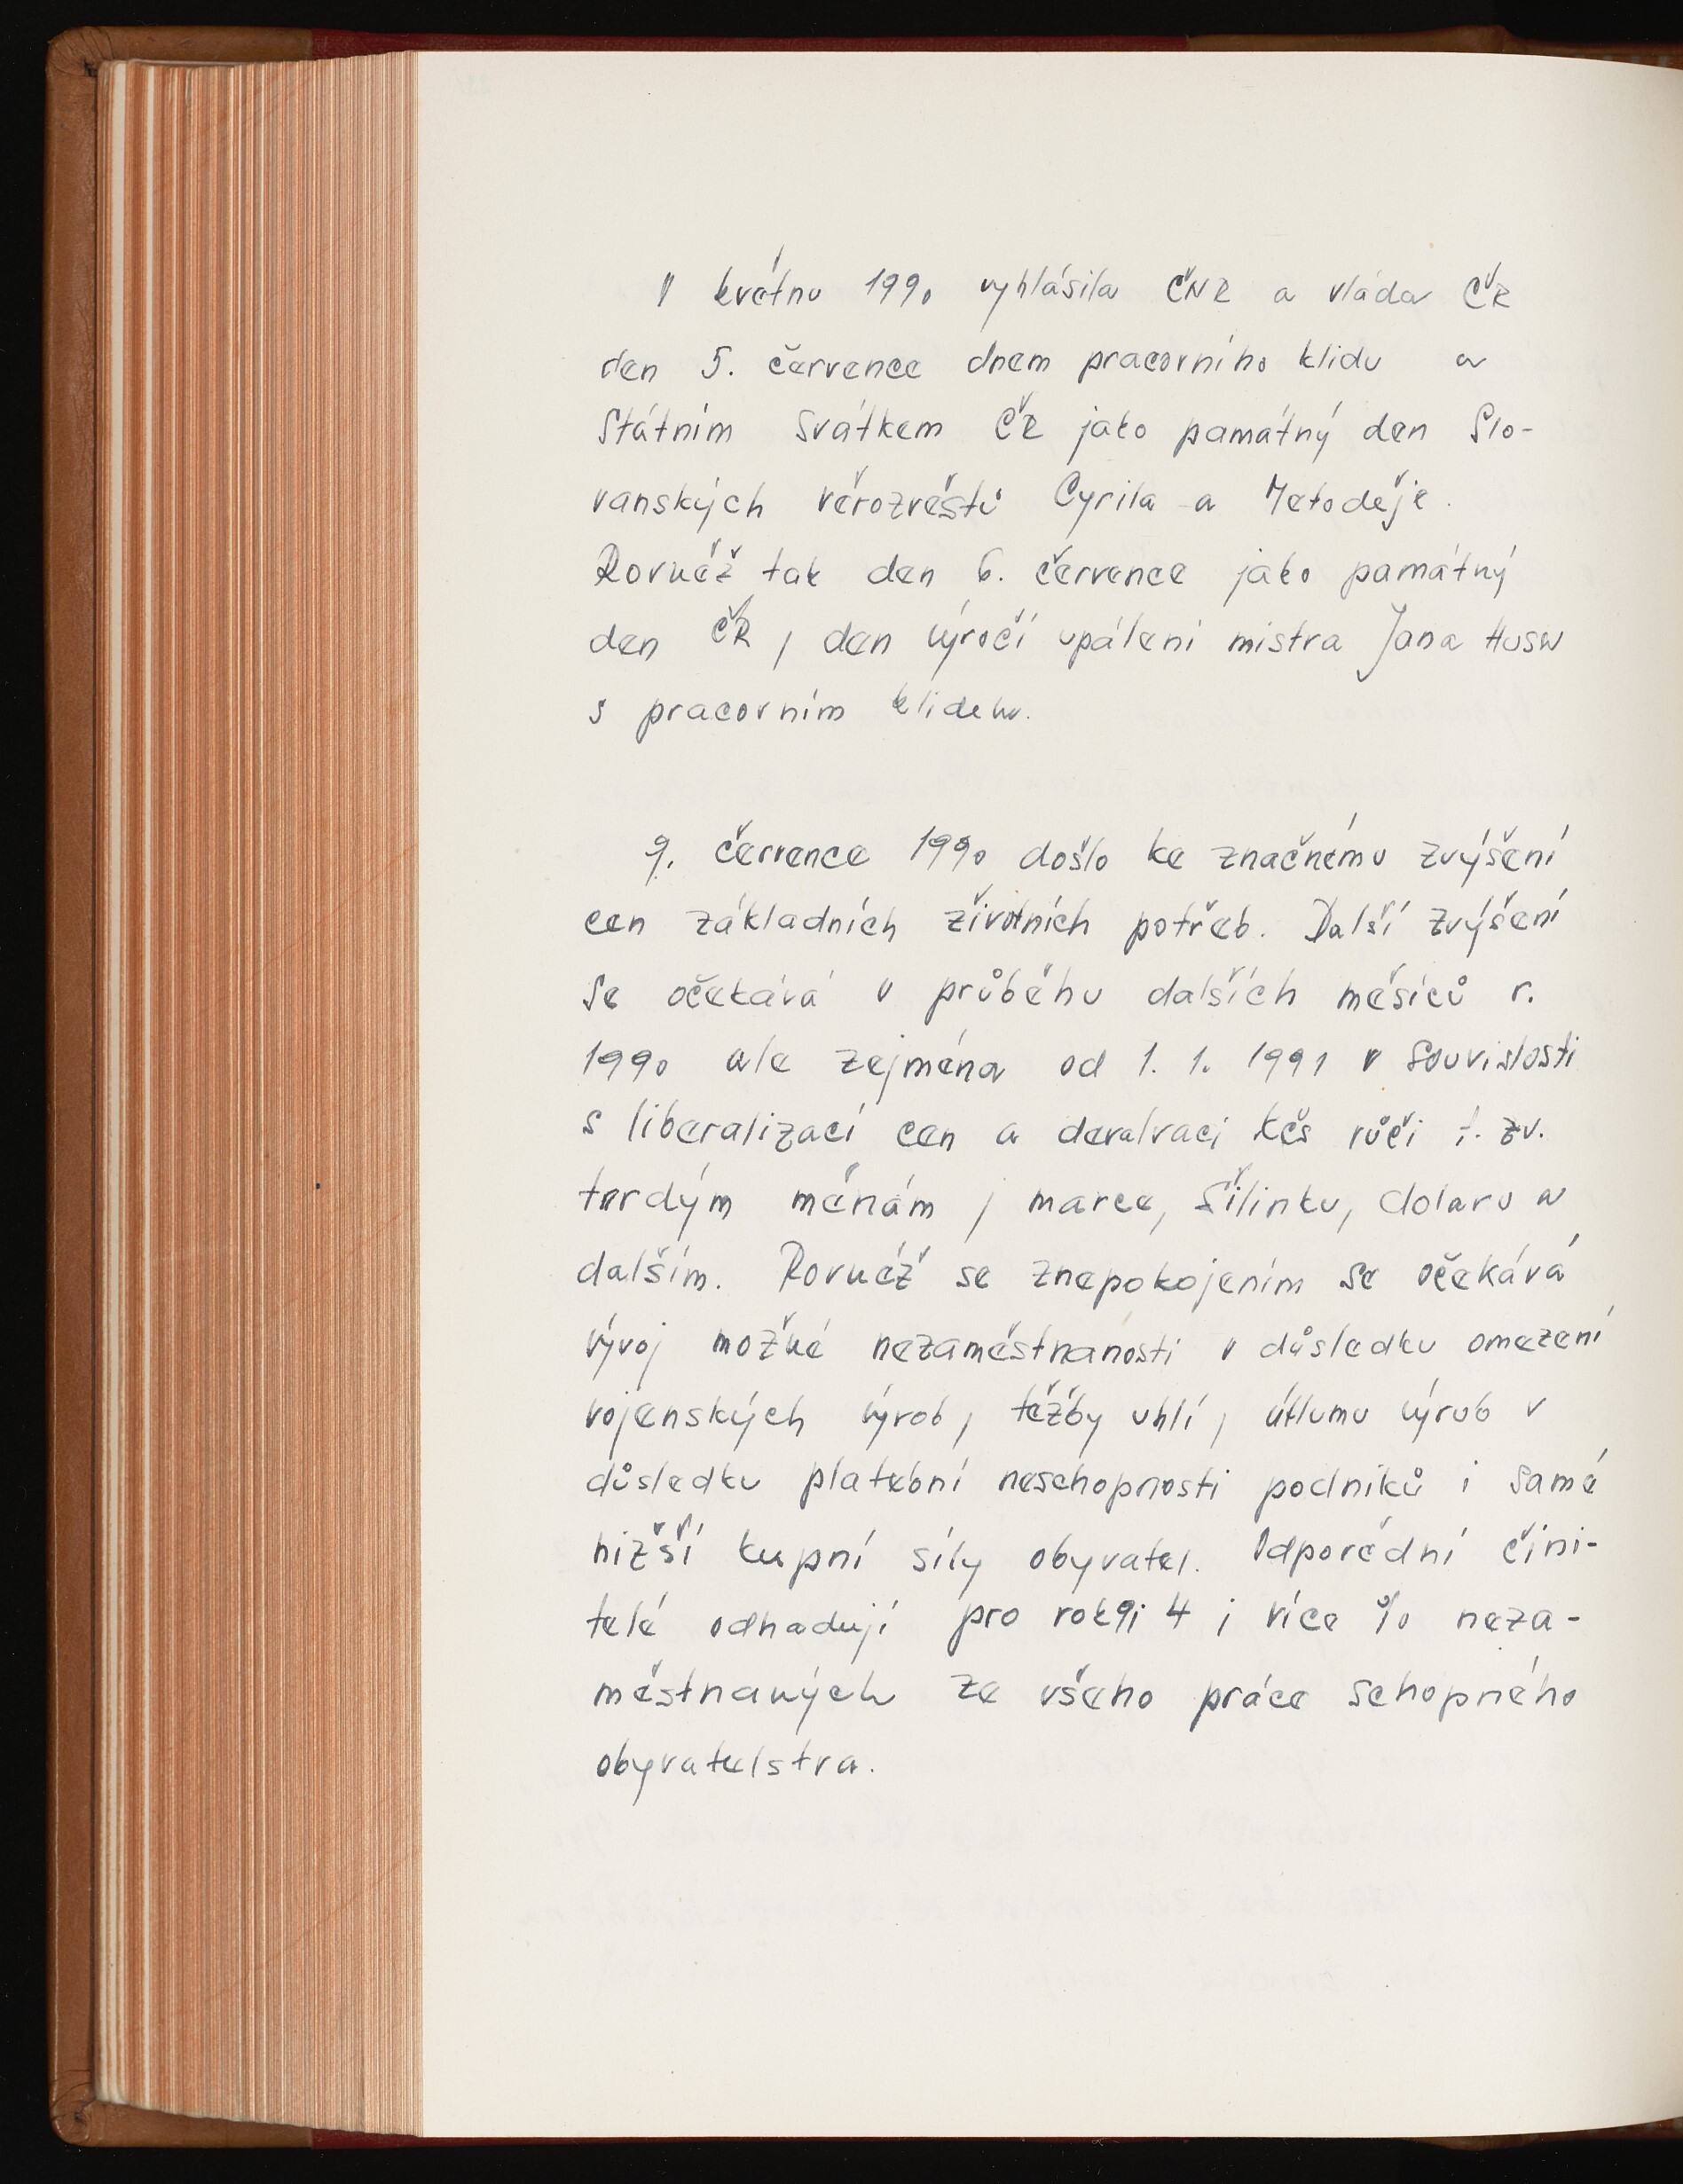 V květnu 1990 vyhlásila ČNR a vláda ČR
den 5. července dnem pracovního klidu a
státním svátkem ČR jako památný den Slo-
vanských věrozvěstů Cyrila a Metoděje.
Rovněž tak den 6. července jako památný
den ČR, den výročí upálení mistra Jana Husa
s pracovním klidem.
9. července 1990 došlo ke značnému zvýšení
cen základních životních potřeb. Další zvýšení
se očekává v průběhu dalších měsíců r.
1990 ale zejména od 1. 1. 1991 v souvislosti
s liberalizací cen a devalvaci Kčs vůči t. zv.
tvrdým měnám, marce, šilinku, dolaru a
dalším. Rovněž se znepokojením se očekává
vývoj možné nezaměstnanosti v důsledku omezení
vojenských výrob, těžby uhlí, útlumu výrob v
důsledku platební neschopnosti podniků i samé
nižší kupní síly obyvatel. Odpovědní čini-
telé odhadují pro rok 91 4 i více % neza-
městnaných ze všeho práce schopného
obyvatelstva.